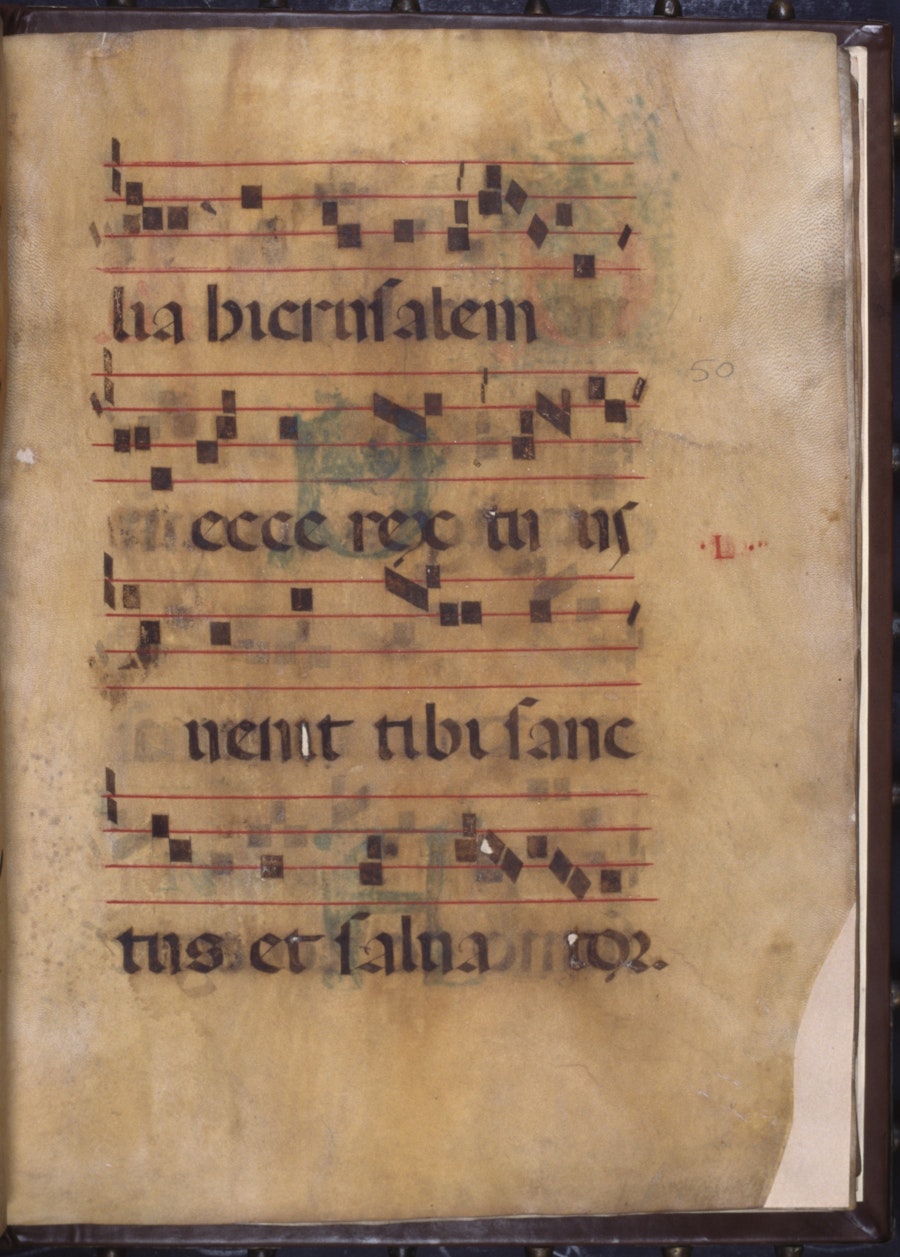 lia hierusalem
50
ecce rex tu us
.L.
uenit tibi sanc
tus. et salua tor.